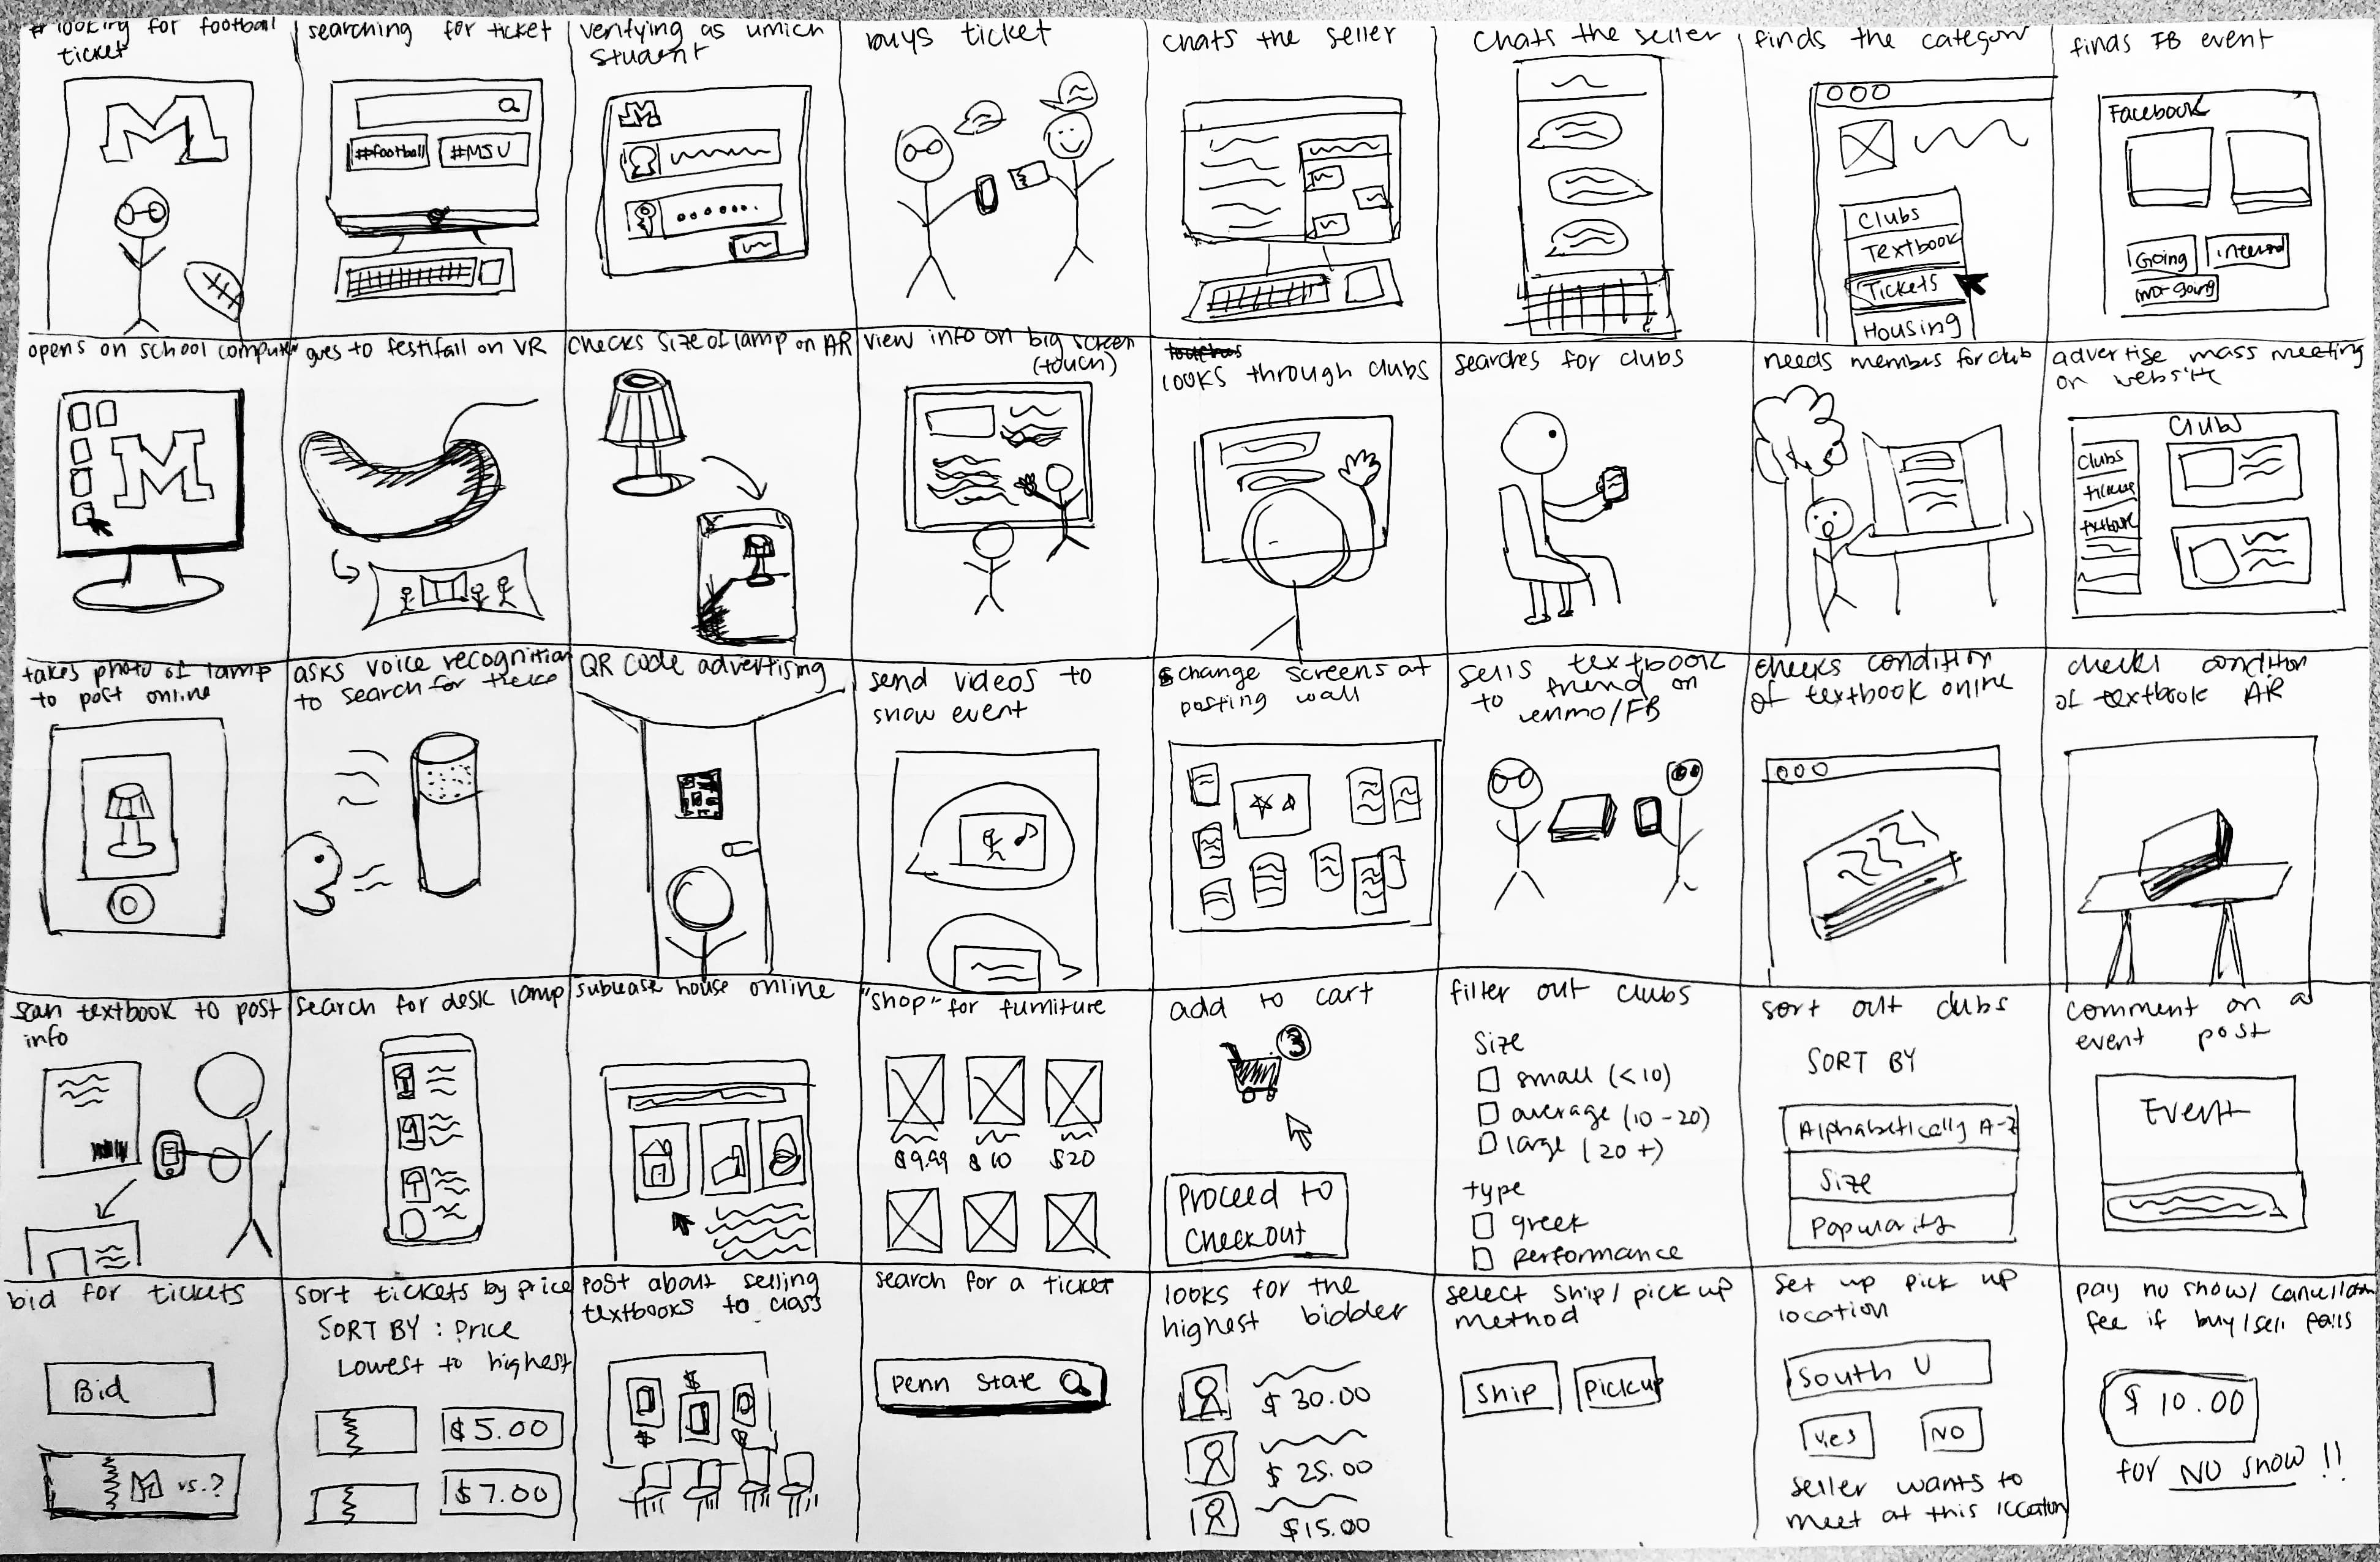 # looking for football
ticket
M
searching for ticket
#football
#MSU
verifying as umich
student
M
buys ticket
chats the seller
chats the seller
finds the category
Clubs
Textbook
Tickets
Housing
finds FB event
Facebook
Going
not going
opens on school computer
M
goes to festifall on VR
checks size of lamp on AR
view info on big screen
(touch)
looks through clubs
searches for clubs
needs members for club
advertise mass meeting
on website
Clubs
Clubs
takes photo of lamp
to post online
asks voice recognition
to search for
QR code advertising
send videos to
show event
change screens at
posting wall
sells textbook
to friend on
venmo/FB
checks condition
of textbook online
checks condition
of textbook AR
scan textbook to post
info
search for desk lamp
sublease house online
"shop" for furniture
$9.99 $10 $20
add to cart
3
Proceed to
Checkout
filter out clubs
Size
small (<10)
average (10-20)
large (20+)
type
greek
performance
sort out clubs
SORT BY
Alphabetically A-Z
Size
Popularity
comment on a
event post
Event
bid for tickets
Bid
M vs.?
sort tickets by price
SORT BY : Price
Lowest to highest
$5.00
$7.00
post about selling
textbooks to class
$
$
search for a ticket
Penn State
looks for the
highest bidder
$30.00
$25.00
$15.00
select ship/pick up
method
Ship
Pickup
set up pick up
location
South U
Yes
No
seller wants to
meet at this location
pay no show/cancellation
fee if buy/sell fails
$10.00
for NO show!!